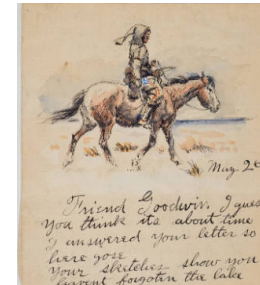 May 26
Friend Goodwin. I gues
you think its about time
I answered your letter so
here gose
Your sketches show you
havent forgotin the lake